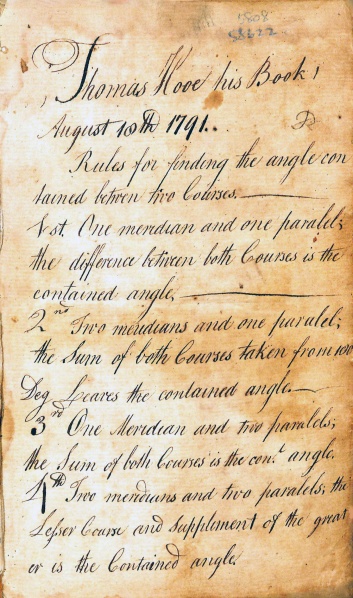 5808
58622
Thomas Hooe his Book
August 10th 1791.
Rules for finding the angle con
tained between two Courses.
1st. One meridian and one paralel;
the difference between both Courses is the
contained angle,
2nd Two meridians and one paralel;
the Sum of both Courses taken from 180
Deg Leaves the contained angle.
3rd One Meridian and two paralels;
the Sum of both Courses is the con.t angle.
4th Two meridians and two paralels; the
Lesser Course and Suppliment of the great
er is the Contained angle.